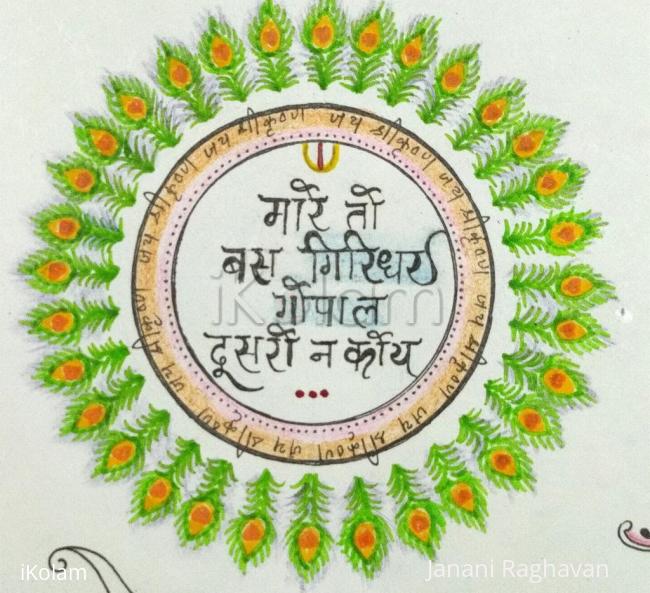 जय श्री कृष्ण जय श्री कृष्ण जय श्री कृष्ण जय श्री कृष्ण जय श्री कृष्ण जय श्री कृष्ण जय श्री कृष्ण जय श्री कृष्ण
मारे तो
बस गिरिधर
गोपाल
दूसरो न कोय
iKolam
iKolam
Janani Raghavan